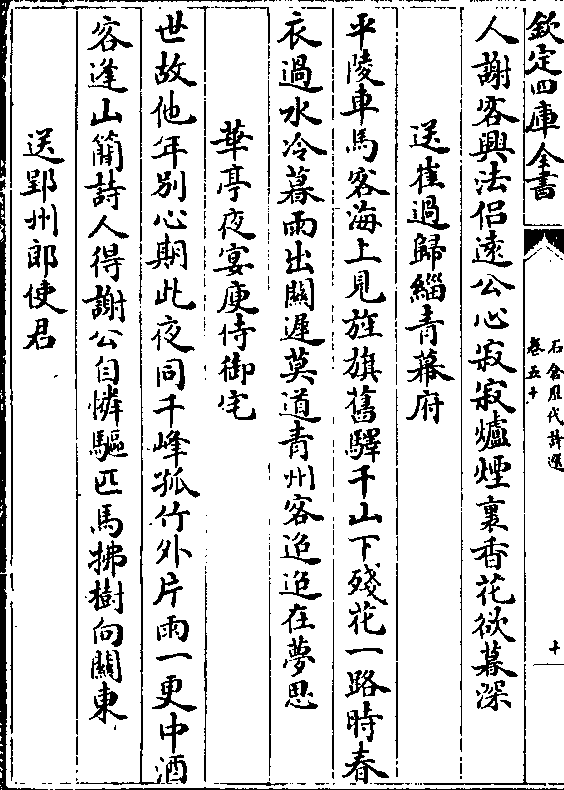 欽定四庫全書
石倉歷代詩選
卷五十
十
人謝客興法侣遠公心寂寂爐煙裏香花欲暮深
送崔過歸緇青幕府
平陵車馬客海上見旌旗舊驛千山下殘花一路時春
衣過水冷暮雨出關遲莫道青州客迢迢在夢思
華亭夜宴庾侍御宅
世故他年别心期此夜同千峰孤竹外片雨一更中酒
客逢山簡詩人得謝公自憐驅匹馬拂樹向關東
送郢州郎使君